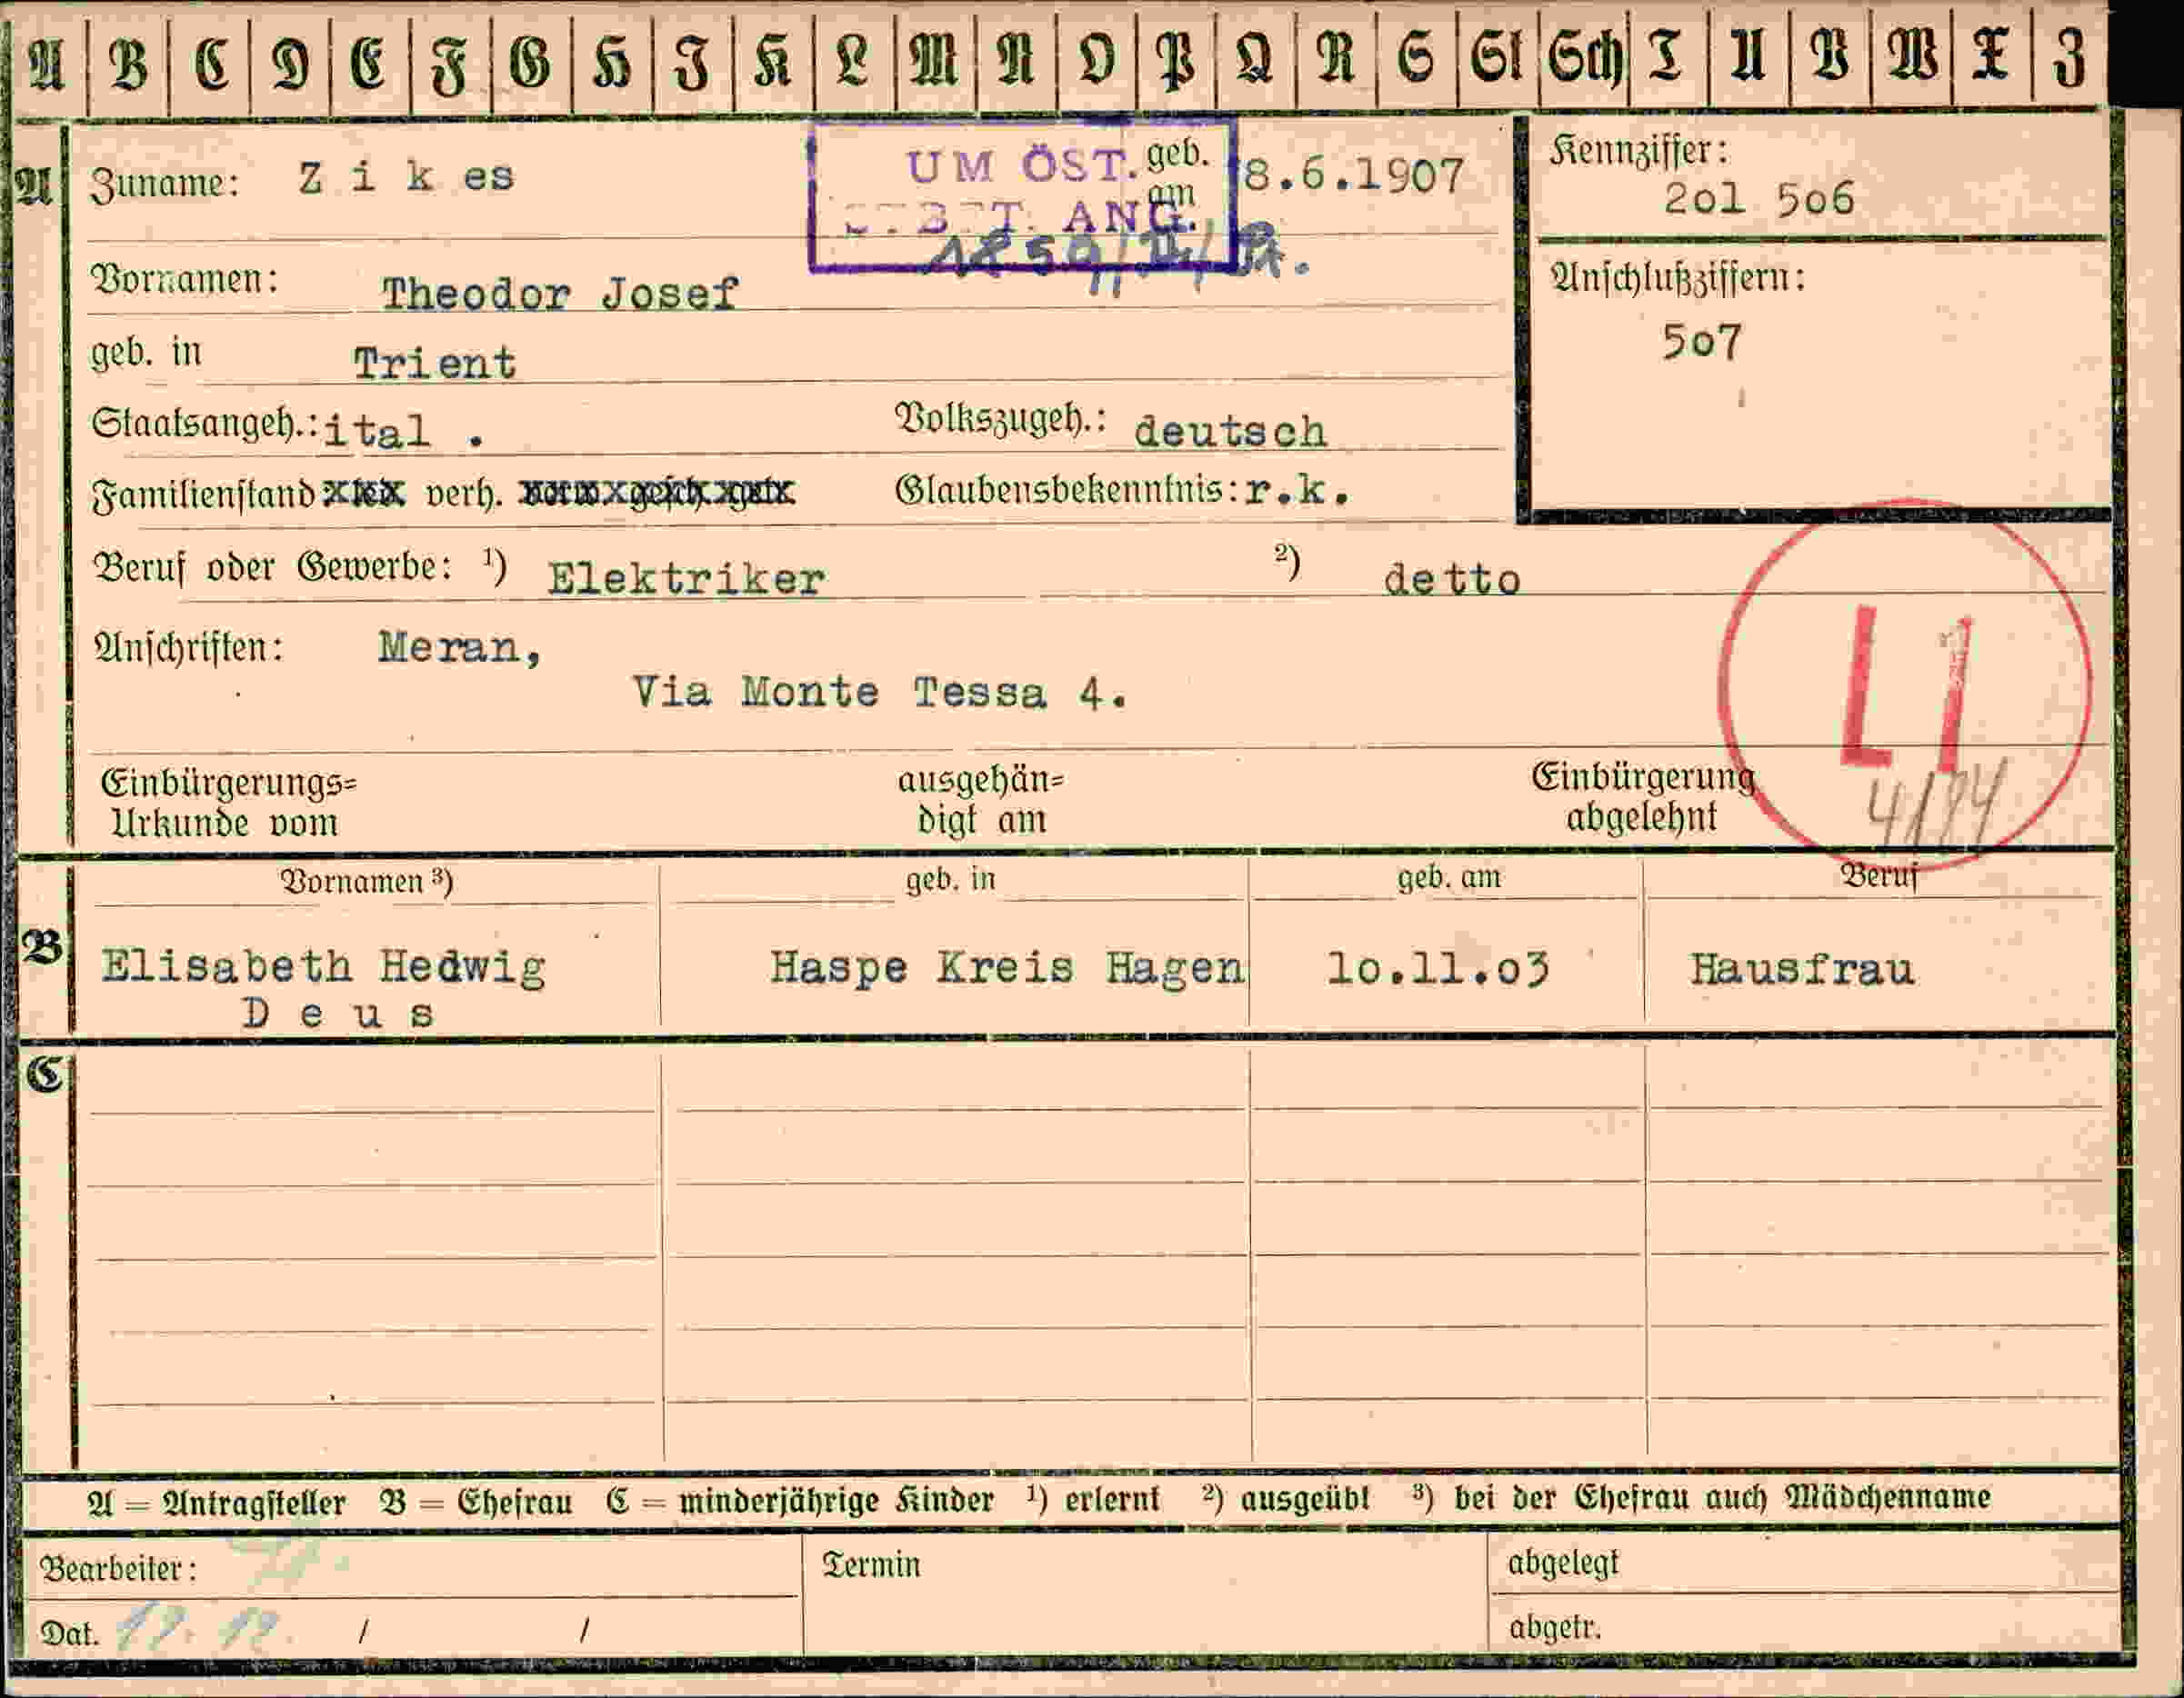 A B C D E F G H I K L M N O P Q R S St Sch T U V W X Z
A Zuname: Z i k es geb. am 8.6.1907
UM ÖST.
ST. ANG.
Kennziffer:
2o1 5o6
Vornamen: Theodor Josef
Anschlußziffern:
5o7
geb. in Trient
Staatsangeh.: ital . Volkszugeh.: deutsch
Familienstand verh. Glaubensbekenntnis: r.k.
Beruf oder Gewerbe: ¹) Elektriker ²) detto
Anschriften: Meran,
Via Monte Tessa 4.
L 1
Einbürgerungs= ausgehän= Einbürgerung
Urkunde vom digt am abgelehnt
Vornamen ³) geb. in geb. am Beruf
B Elisabeth Hedwig Haspe Kreis Hagen 1o.11.o3 Hausfrau
D e u s
C
A = Antragsteller B = Ehefrau C = minderjährige Kinder ¹) erlernt ²) ausgeübt ³) bei der Ehefrau auch Mädchenname
Bearbeiter: Termin abgelegt
Dat. / / abgetr.